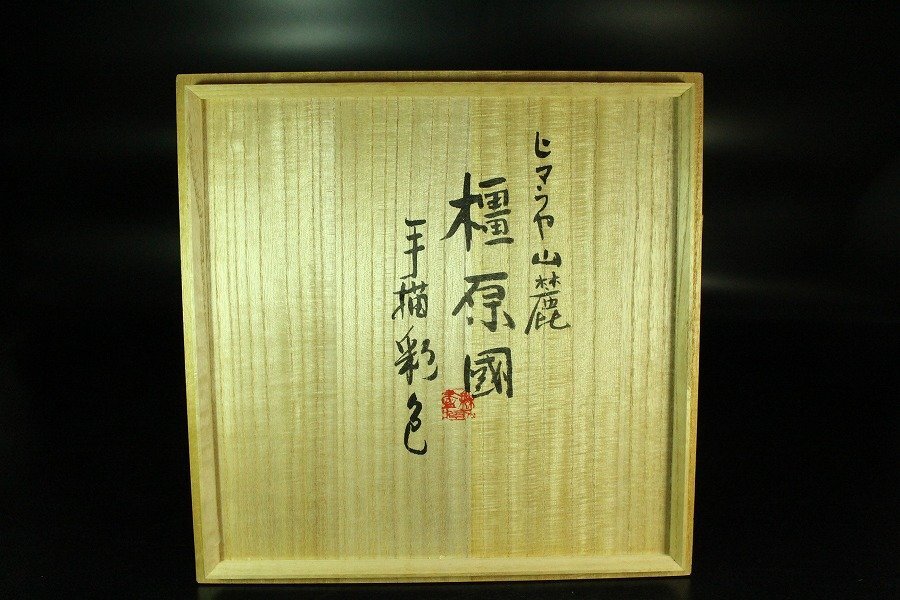 ヒマラヤ山麓
橿原國
手描彩色